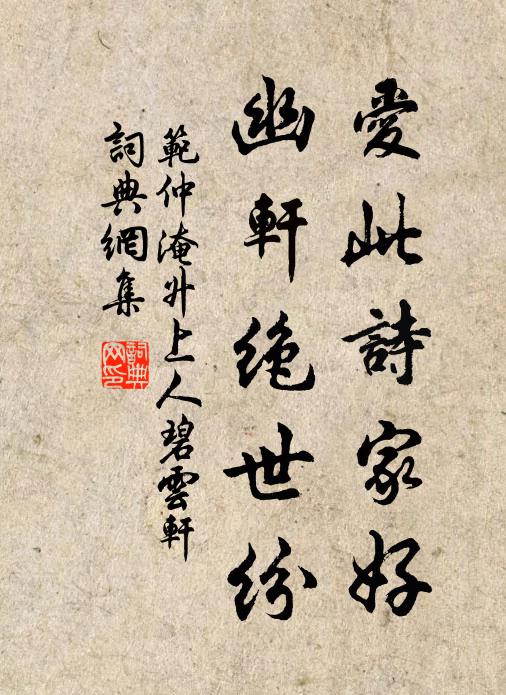 愛此詩家好
幽軒絕世紛
範仲淹升上人碧雲軒
詞典網集
詞典网印